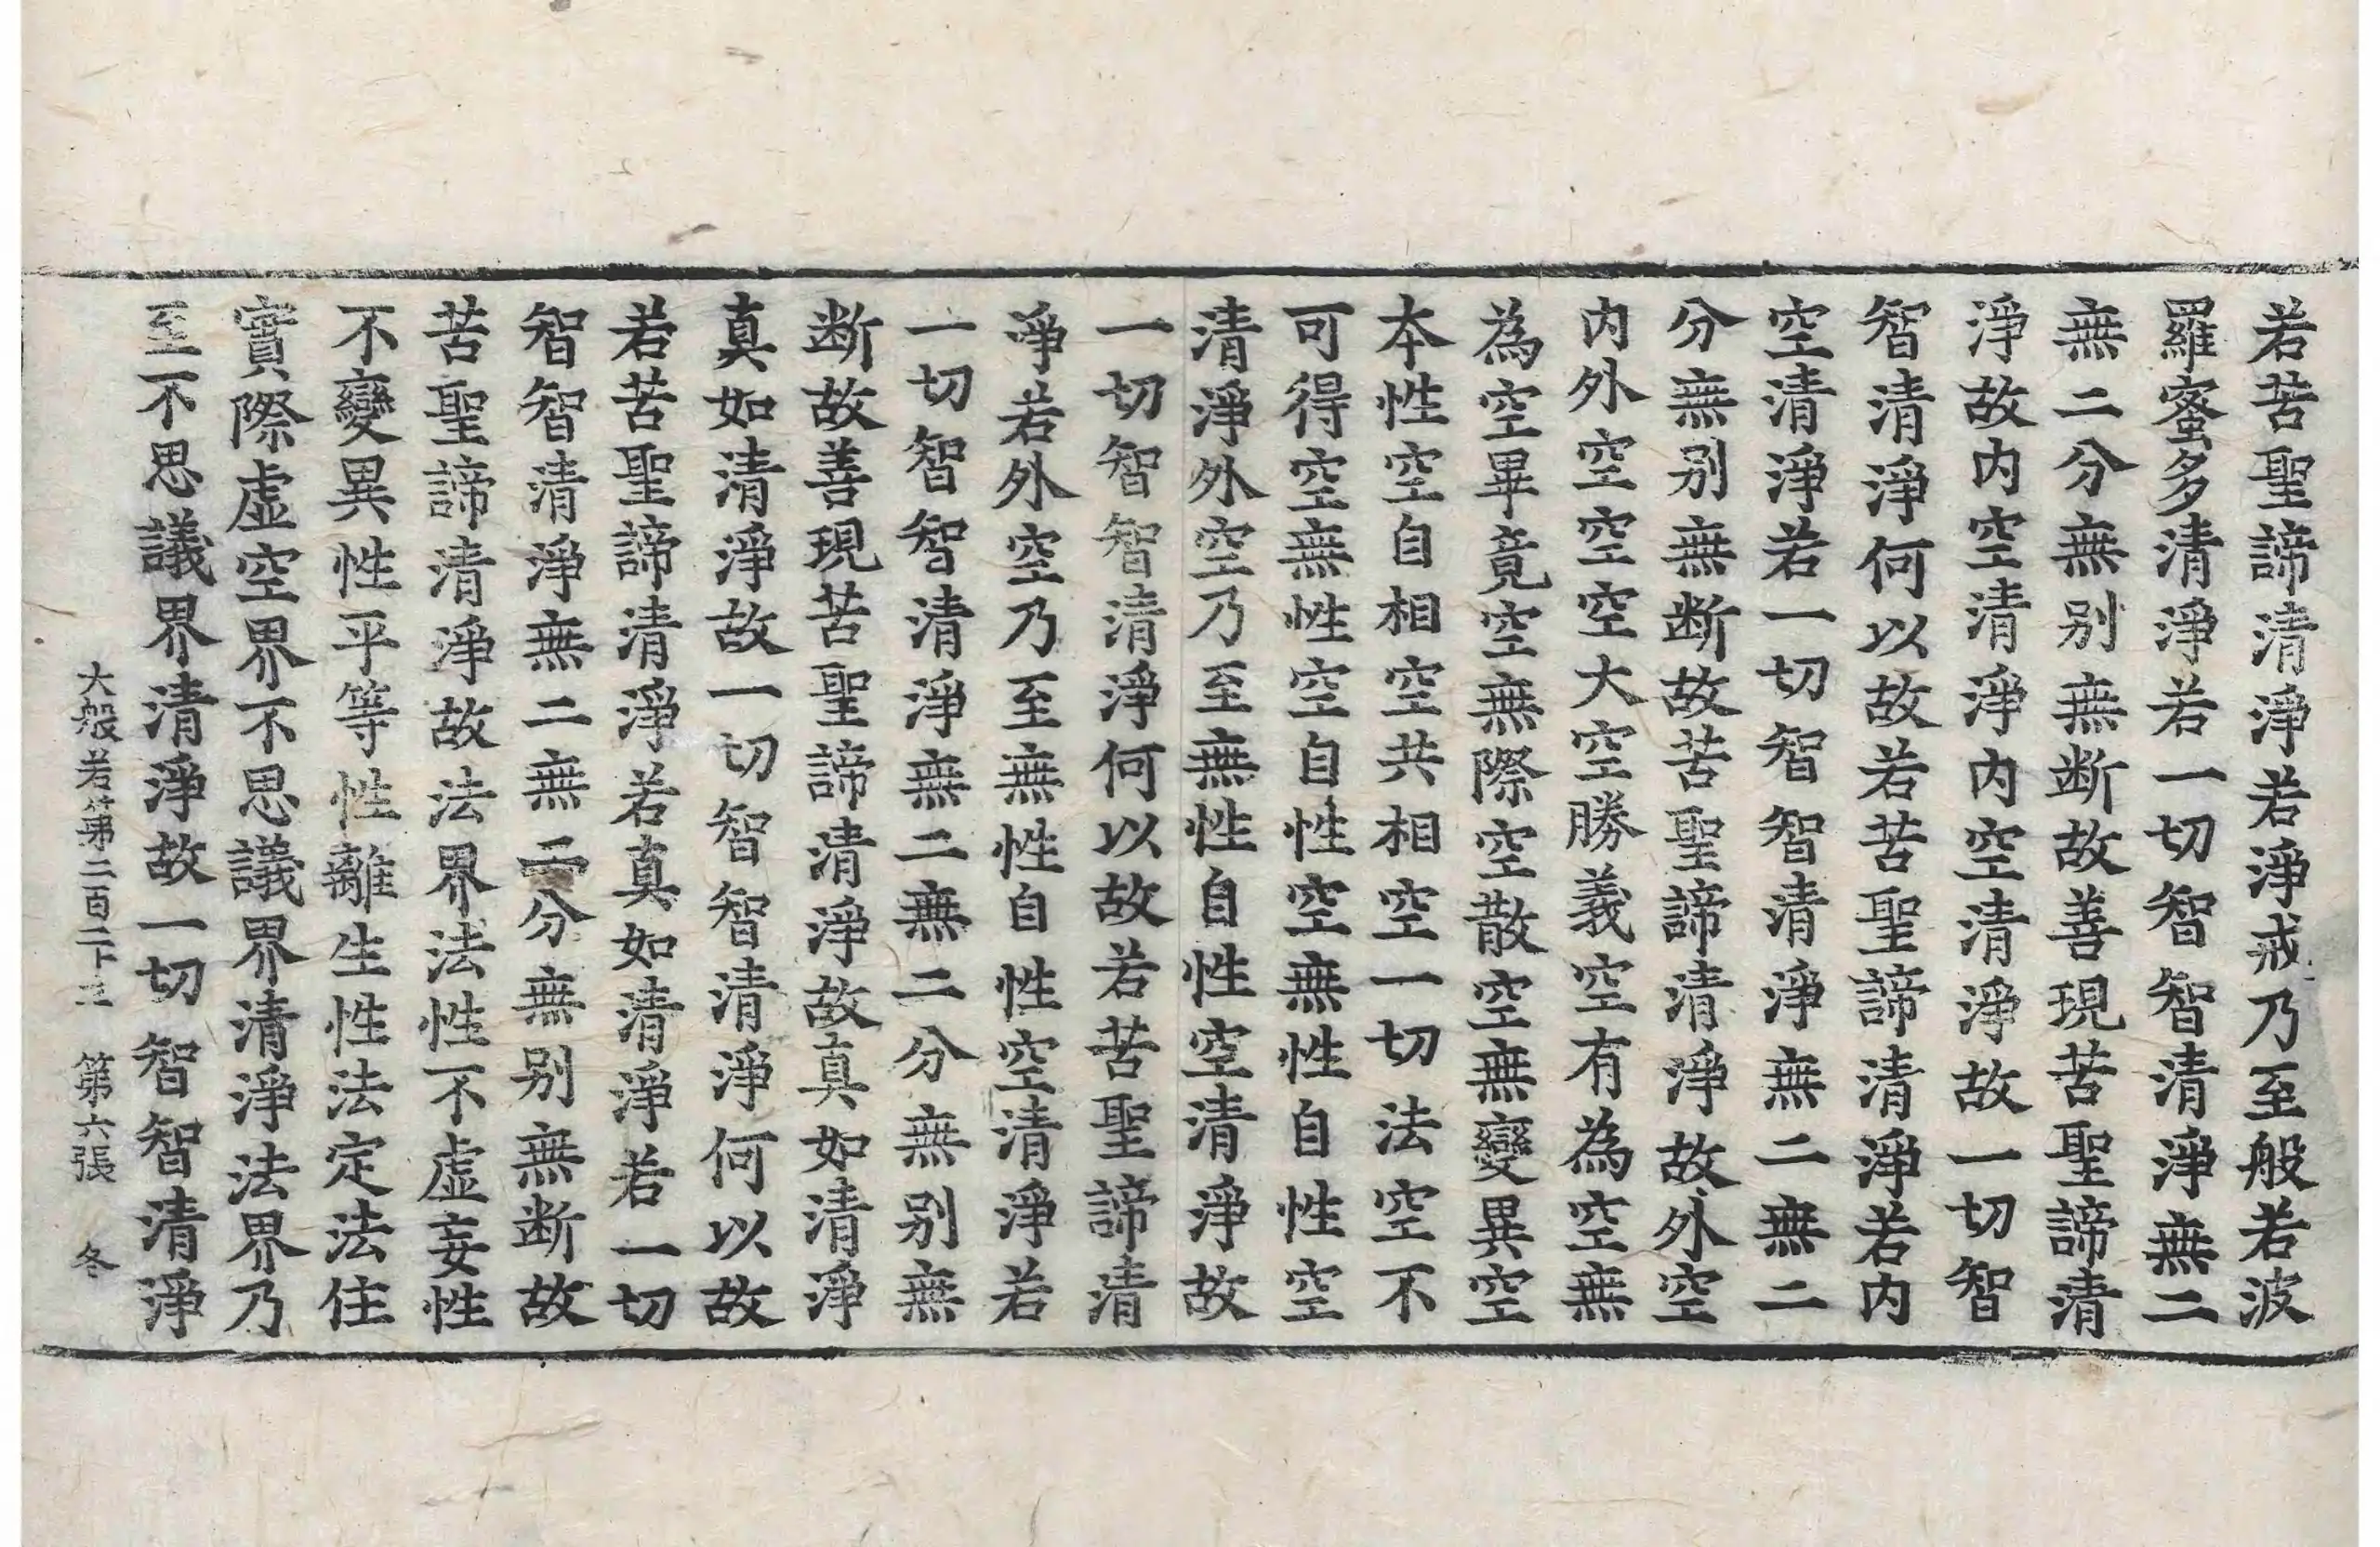 若苦聖諦清淨若淨戒乃至般若波
羅蜜多清淨若一切智智清淨無二
無二分無別無断故善現苦聖諦清
淨故内空清淨内空清淨故一切智
智清淨何以故若苦聖諦清淨若内
空清淨若一切智智清淨無二無二
分無別無断故苦聖諦清淨故外空
内外空空空大空勝義空有為空無
為空畢竟空無際空散空無變異空
本性空自相空共相空一切法空不
可得空無性空自性空無性自性空
清淨外空乃至無性自性空清淨故
一切智智清淨何以故若苦聖諦清
淨若外空乃至無性自性空清淨若
一切智智清淨無二無二分無別無
断故善現苦聖諦清淨故真如清淨
真如清淨故一切智智清淨何以故
若苦聖諦清淨若真如清淨若一切
智智清淨無二無二分無別無断故
苦聖諦清淨故法界法性不虛妄性
不變異性平等性離生性法定法住
實際虛空界不思議界清淨法界乃
至不思議界清淨故一切智智清淨
大般若第二百二 第六張 冬